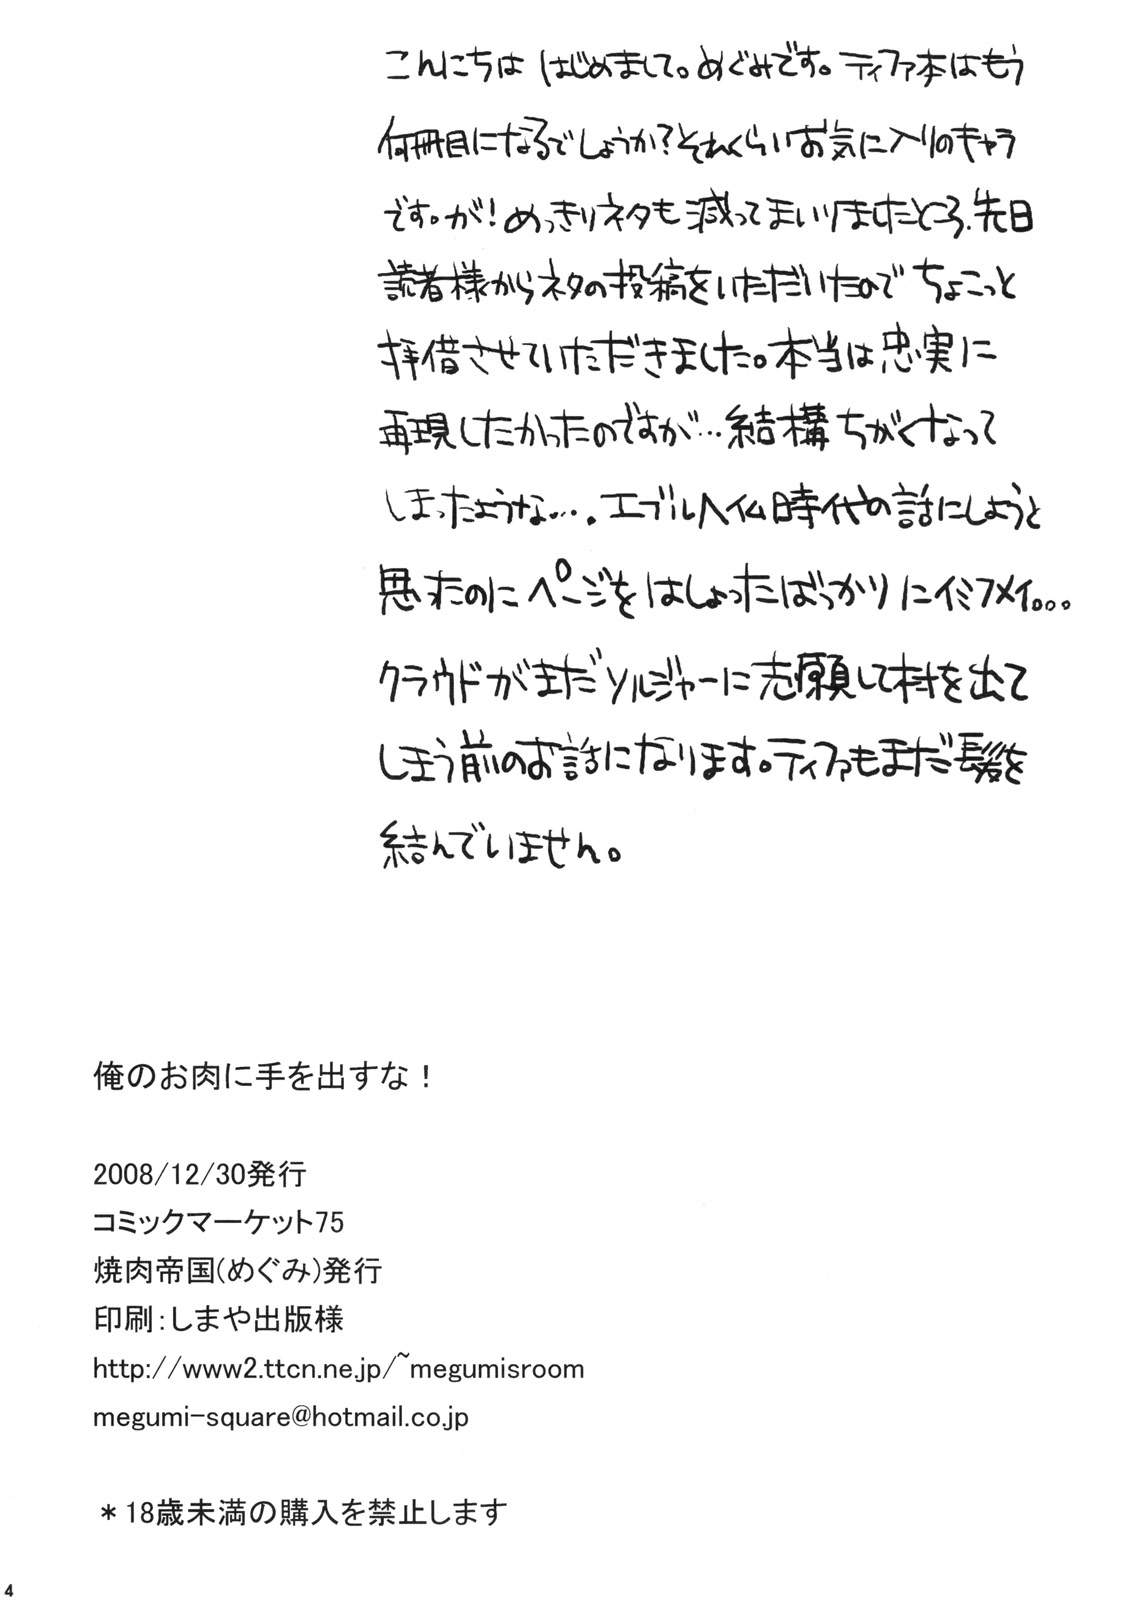 こんにちは はじめまして。めぐみです。ティファ本はもう
何冊目になるでしょうか?それくらいお気に入りのキャラ
です。が!めっきりネタも減ってまいりましたところ、先日
読者様からネタの投稿をいただいたのでちょこっと
拝借させていただきました。本当は忠実に
再現したかったのですが…結構ちがくなって
しまったような…。エブルヘイム時代の話にしようと
思ったのにページをはしょったばっかりにイミフメイ。。。
クラウドがまだソルジャーに志願して村を出て
しまう前のお話になります。ティファもまだ長髪を
結んでいません。
俺のお肉に手を出すな!
2008/12/30発行
コミックマーケット75
焼肉帝国(めぐみ)発行
印刷:しまや出版様
http://www2.ttcn.ne.jp/~megumisroom
megumi-square@hotmail.co.jp
*18歳未満の購入を禁止します
4